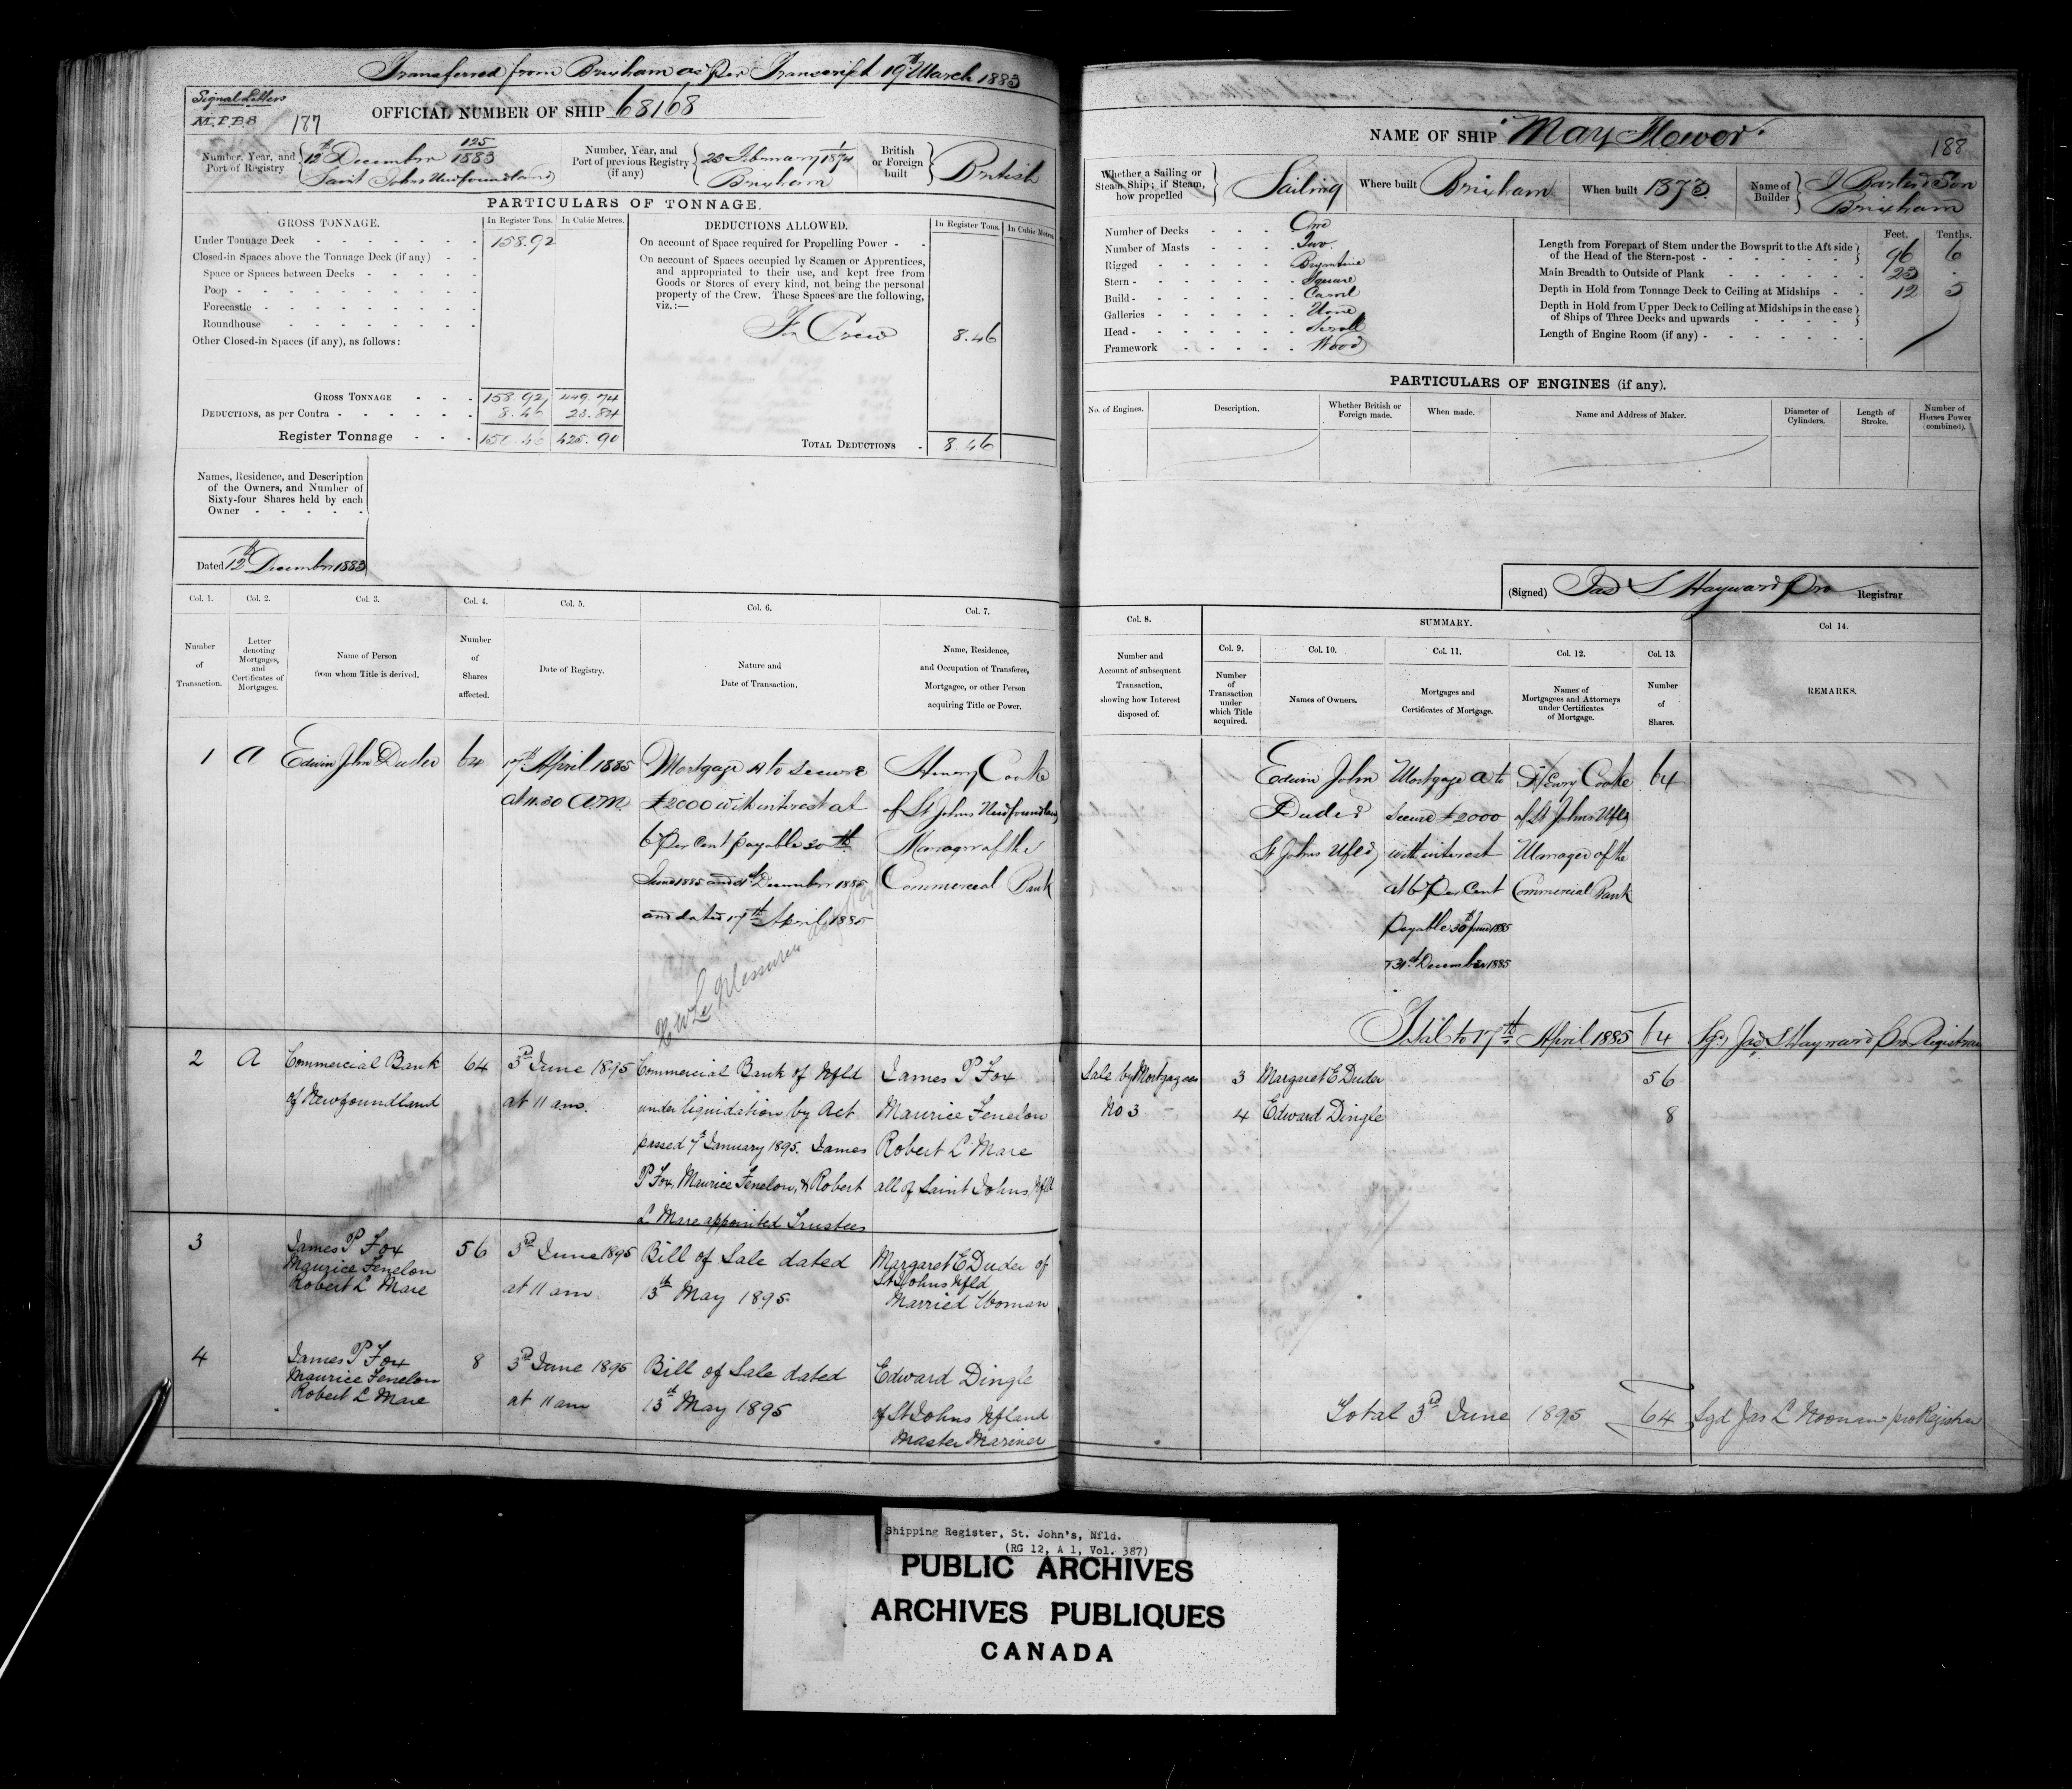 Transferred from Brixham as per Transcript 19th March 1883
Signal Letters
M.P.B.8
187
OFFICIAL NUMBER OF SHIP 68168
Number, Year, and Port of Registry
125/1883
12th December
Saint Johns Newfoundland
Number, Year, and Port of previous Registry (if any)
23 February 1/1874
Brixham
British or Foreign built
British
PARTICULARS OF TONNAGE.
GROSS TONNAGE.
In Register Tons.
In Cubic Metres.
Under Tonnage Deck 158.92
Closed-in Spaces above the Tonnage Deck (if any)
Space or Spaces between Decks
Poop
Forecastle
Roundhouse
Other Closed-in Spaces (if any), as follows:
GROSS TONNAGE 158.92 449.74
DEDUCTIONS, as per Contra 8.46 23.84
Register Tonnage 150.46 425.90
DEDUCTIONS ALLOWED.
In Register Tons.
In Cubic Metres
On account of Space required for Propelling Power
On account of Spaces occupied by Seamen or Apprentices,
and appropriated to their use, and kept free from
Goods or Stores of every kind, not being the personal
property of the Crew. These Spaces are the following,
viz.:—
Crew 8.46
TOTAL DEDUCTIONS 8.46
Names, Residence, and Description
of the Owners, and Number of
Sixty-four Shares held by each
Owner
Dated 12th December 1883
Col. 1. Col. 2. Col. 3. Col. 4. Col. 5. Col. 6. Col. 7.
Number of Transaction.
Letter denoting Mortgages, and Certificates of Mortgages.
Name of Person from whom Title is derived.
Number of Shares affected.
Date of Registry.
Nature and Date of Transaction.
Name, Residence, and Occupation of Transferee, Mortgagee, or other Person acquiring Title or Power.
1 A Edwin John Duder 64
17th April 1885
at 11.30 A.M.
Mortgage A to secure
£2000 with interest at
6 Per Cent payable 30th
June 1885 and 31st December 1885
and dated 17th April 1885
Henry Cooke
of St Johns Newfoundland
Manager of the
Commercial Bank
2 A Commercial Bank
of Newfoundland
64
3rd June 1895
at 11 am.
Commercial Bank of Nfld
under liquidation by Act
passed 7th January 1895. James
P Fox, Maurice Fenelon, & Robert
L Mare appointed Trustees
James P Fox
Maurice Fenelon
Robert L Mare
all of Saint Johns, Nfld
3
James P Fox
Maurice Fenelon
Robert L Mare
56
3rd June 1895
at 11 am
Bill of Sale dated
13th May 1895
Margaret E Duder of
St Johns Nfld
Married Woman
4
James P Fox
Maurice Fenelon
Robert L Mare
8
3rd June 1895
at 11 am
Bill of Sale dated
13th May 1895
Edward Dingle
of St Johns Nfland
Master Mariner
NAME OF SHIP "May Flower"
188
Whether a Sailing or Steam Ship; if Steam, how propelled
Sailing
Where built Brixham
When built 1873
Name of Builder
Son
Brixham
Number of Decks One
Number of Masts Two
Rigged Brigantine
Stern Square
Build Carvel
Galleries None
Head Scroll
Framework Wood
Feet. Tenths.
Length from Forepart of Stem under the Bowsprit to the Aft side
of the Head of the Stern-post 96 6
Main Breadth to Outside of Plank 23 .
Depth in Hold from Tonnage Deck to Ceiling at Midships 12 5
Depth in Hold from Upper Deck to Ceiling at Midships in the case
of Ships of Three Decks and upwards
Length of Engine Room (if any)
PARTICULARS OF ENGINES (if any).
No. of Engines.
Description.
Whether British or Foreign made.
When made.
Name and Address of Maker.
Diameter of Cylinders.
Length of Stroke.
Number of Horses Power (combined).
(Signed) Jas S Hayward Pro Registrar
Col. 8.
SUMMARY.
Col 14.
Col. 9. Col. 10. Col. 11. Col. 12. Col. 13.
Number and Account of subsequent Transaction, showing how Interest disposed of.
Number of Transaction under which Title acquired.
Names of Owners.
Mortgages and Certificates of Mortgage.
Names of Mortgagees and Attorneys under Certificates of Mortgage.
Number of Shares.
REMARKS.
Edwin John
Duder
St Johns Nfld
Mortgage A to
secure £2000
with interest
at 6 Per Cent
Payable 30th June 1885
& 31st December 1885
Henry Cooke
of St Johns Nfld
Manager of the
Commercial Bank
64
Total to 17th April 1885 64 Sgd Jas S Hayward Pro Registrar
Sale by Mortgagees
No 3
3 Margaret E Duder 56
4 Edward Dingle 8
Total 3rd June 1895 64 Sgd Jas L Noonan pro Registrar
Shipping Register, St. John's, Nfld.
(RG 12, A 1, Vol. 387)
PUBLIC ARCHIVES
ARCHIVES PUBLIQUES
CANADA